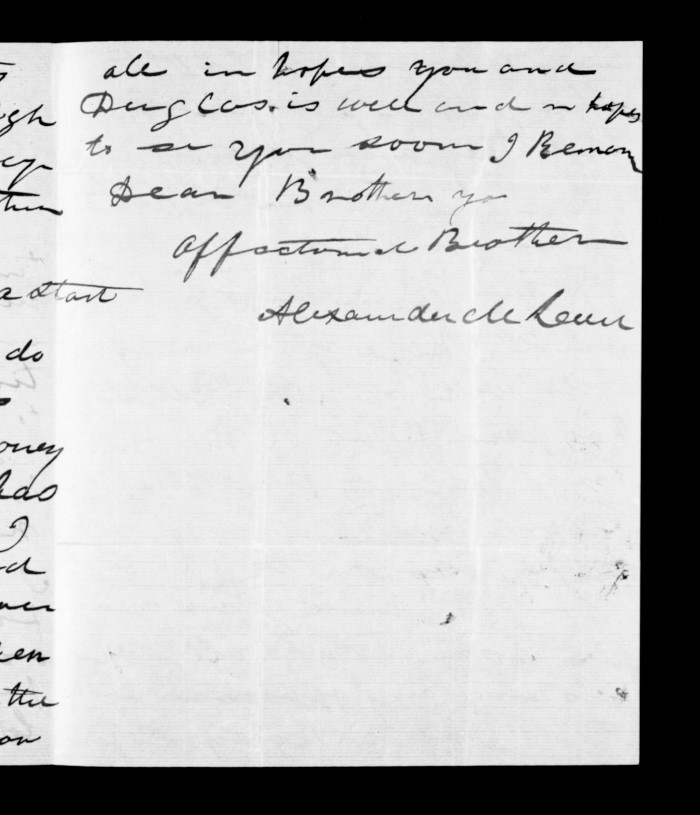 gh
a start
do
oney
has
I
d
ver
ken
the
on
all in hopes you and
Duglas. is well and in hopes
to se you soon I Reman
Dear Brother yo
Affectund Brother
Alexander Mc Lean